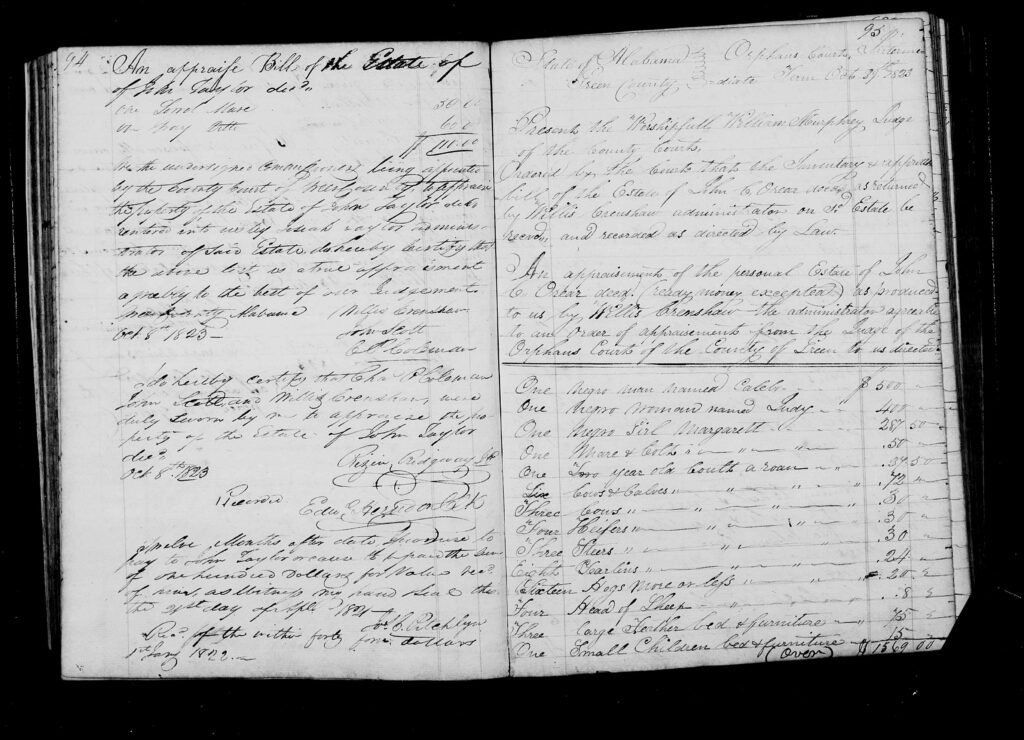 94
An appraise Bill of the Estate of
of John Taylor decd
One Sorrel Mare 50.00
60.0
$ 110.00
We the undersigned Commissioners being appointed
by the County Court of to appraise
the property of the Estate of John Taylor decd
rendered into us by Taylor adminis
trator of Said Estate do hereby Certify that
the above list is a true appraisement
agreeably to the best of our Judgement
Alabama Willis Crenshaw
Octr 8th 1823 — John Scott
C. P. Coleman
do hereby certify that Chas P Coleman
John Scott and Willis Crenshaw were
duly sworn by me to appraise the pro
perty of the Estate of John Taylor
decd
Oct 8th 1823 Rezin Ridgway
Recorded
Twelve Months after date I promise to
pay to John Taylor or cause to be paid the sum
of one hundred Dollars for Value recd
of him, as Witness my hand and Seal this
the 21st day of Apl 1821
Pitchlyn
Recd of the within forty four dollars
1st Jany 1822
95
State of Alabama Orphans Court, Interme
Green County diate Term Oct 1823
Present the Worshipfull William Murphey Judge
of the County Court,
Ordered by the Court that the Inventory & appraise
bill of the Estate of John C. Orear decd, as returned
by Willis Crenshaw administrator on sd Estate be
Recvd, and recorded as directed by Law.
An appraisement of the personal Estate of John
C. Orear decd. (ready money excepted) as produced
to us by Willis Crenshaw the administrator agreeable
to an Order of appraisement from the Judge of the
Orphans Court of the County of Green to us directed
One Negro man named Caleb $ 500
One Negro Woman named Judy 400
One Negro Girl Margarett 287 50
One Mare & Colt 50
One Two year old Coult a roan 37 50
Six Cows & Calves 72
Three Cows 30
Four Heifers 30
Three Steers 30
Eight Yearlins 24
Sixteen Hogs more or less 20
Four Head of Sheep 8
Three large Feather bed & furniture 75
One Small Children bed & furniture 5
(Over) $ 1569 00